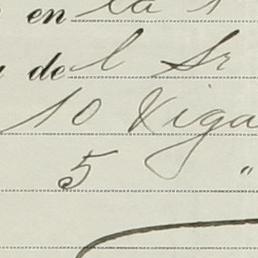 en la
de l Sr
10 Viga
5 "